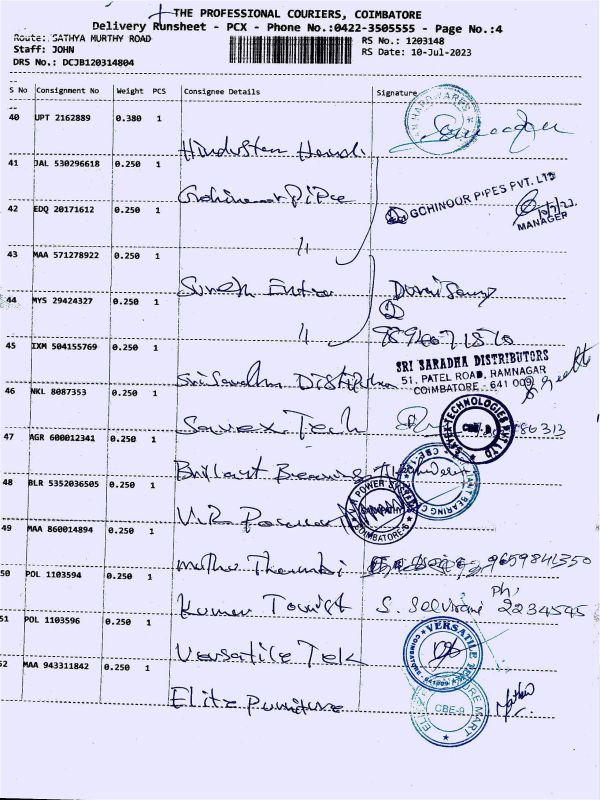 THE PROFESSIONAL COURIERS, COIMBATORE
Delivery Runsheet - PCX - Phone No.:0422-3505555 - Page No.:4
Route: SATHYA MURTHY ROAD
RS No.: 1203148
Staff: JOHN
RS Date: 10-Jul-2023
DRS No.: DCJB120314804
S No Consignment No Weight PCS Consignee Details Signature
40 UPT 2162889 0.380 1
Hindustan
41 JAL 530296618 0.250 1
Gohinoor Pipe
GOHINOOR PIPES PVT. LTD
MANAGER
42 EDQ 20171612 0.250 1
"
43 MAA 571278922 0.250 1
Suresh
44 MYS 29424327 0.250 1
"
45 IXM 504155769 0.250 1
Sri Saradha
SRI SARADHA DISTRIBUTORS
51, PATEL ROAD, RAMNAGAR
COIMBATORE - 641 009
46 NKL 8087353 0.250 1
Savex Tech
SAVEX TECHNOLOGIES PVT LTD
47 AGR 600012341 0.250 1
Brilliant Bearing
48 BLR 5352036505 0.250 1
V.R. Power
POWER SYSTEMS
COIMBATORE-9
49 MAA 860014894 0.250 1
Muthu
9659841350
50 POL 1103594 0.250 1
Kumar Tourist S. Selvirani Ph; 2234545
51 POL 1103596 0.250 1
Versatile Tek
VERSATILE
52 MAA 943311842 0.250 1
Elite Furniture
CBE-9